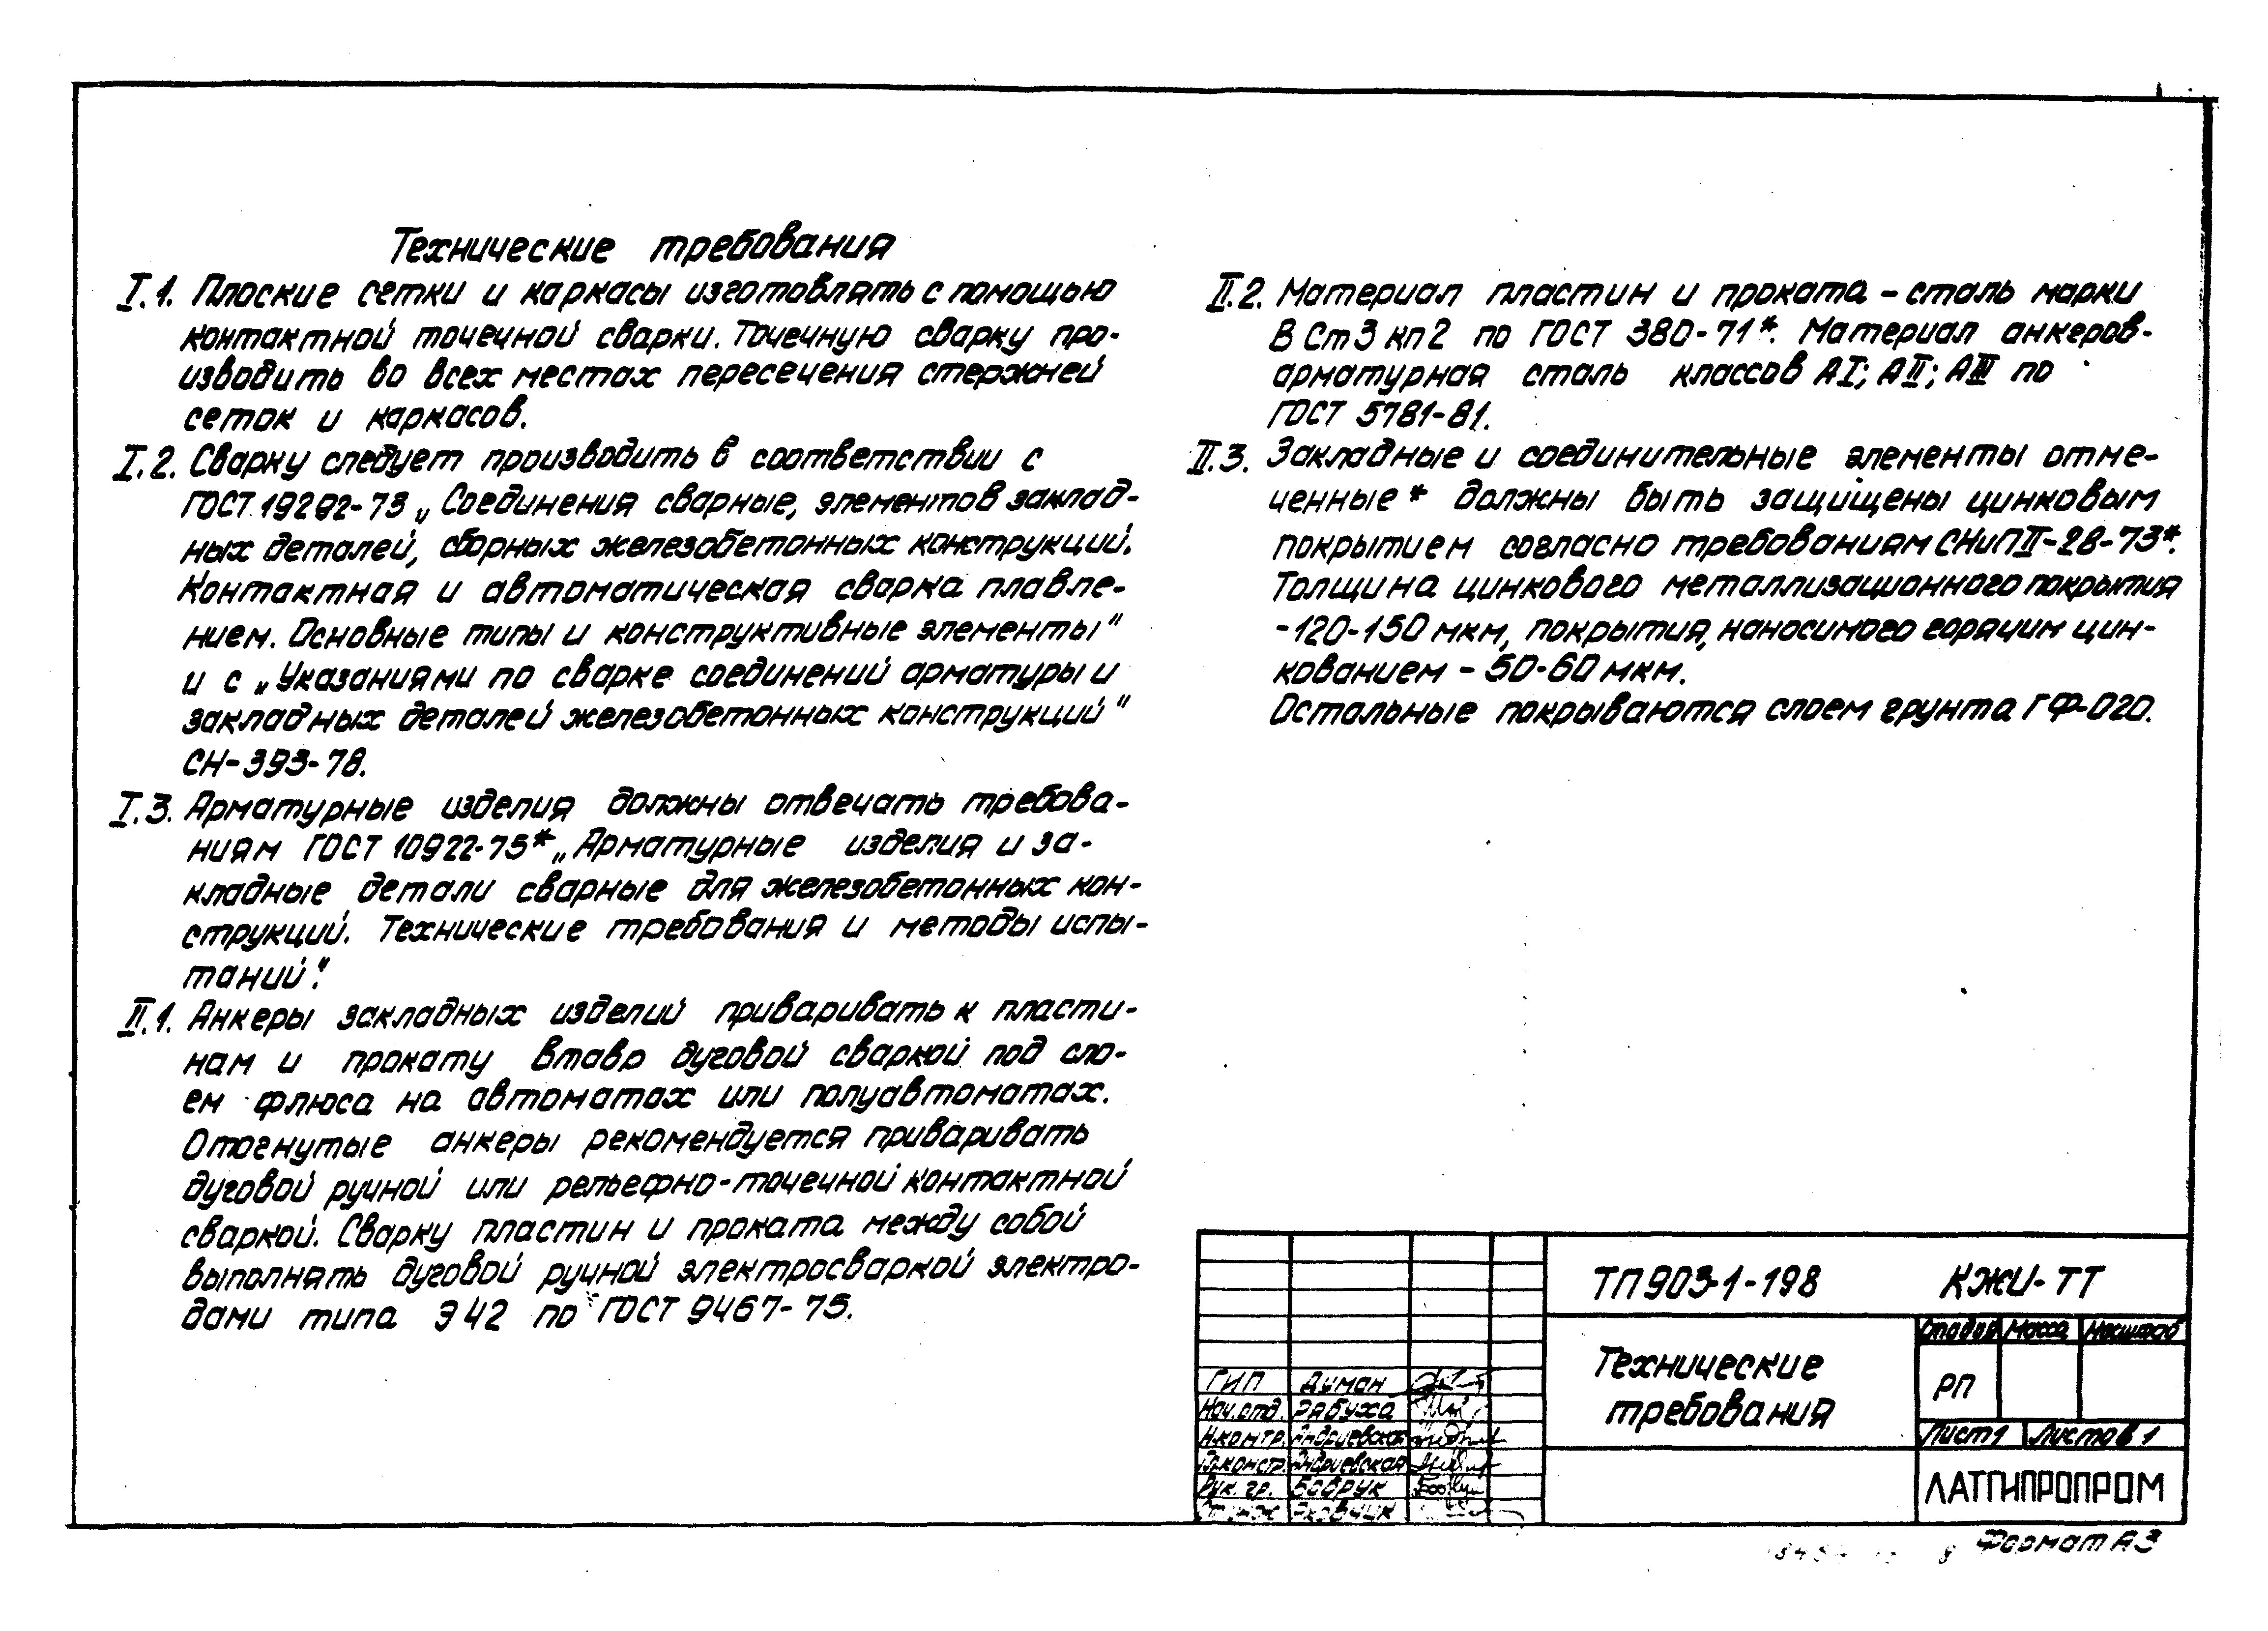 Технические требования
I.1. Плоские сетки и каркасы изготовлять с помощью
контактной точечной сварки. Точечную сварку про-
изводить во всех местах пересечения стержней
сеток и каркасов.
I.2. Сварку следует производить в соответствии с
ГОСТ 19292-73 „Соединения сварные, элементов заклад-
ных деталей, сборных железобетонных конструкций.
Контактная и автоматическая сварка плавле-
нием. Основные типы и конструктивные элементы"
и с „Указаниями по сварке соединений арматуры и
закладных деталей железобетонных конструкций"
СН-393-78.
I.3. Арматурные изделия должны отвечать требова-
ниям ГОСТ 10922-75* „Арматурные изделия и за-
кладные детали сварные для железобетонных кон-
струкций. Технические требования и методы испы-
таний".
II.1. Анкеры закладных изделий приваривать к пласти-
нам и прокату втавр дуговой сваркой под сло-
ем флюса на автоматах или полуавтоматах.
Отогнутые анкеры рекомендуется приваривать
дуговой ручной или рельефно-точечной контактной
сваркой. Сварку пластин и проката между собой
выполнять дуговой ручной электросваркой электро-
дами типа Э42 по ГОСТ 9467-75.
II.2. Материал пластин и проката - сталь марки
В Ст 3 кп 2 по ГОСТ 380-71*. Материал анкеров-
арматурная сталь классов АI; АII; АIII по
ГОСТ 5781-81.
II.3. Закладные и соединительные элементы отме-
ченные * должны быть защищены цинковым
покрытием согласно требованиям СНиП II-28-73*.
Толщина цинкового металлизационного покрытия
-120-150 мкм, покрытия, наносимого горячим цин-
кованием - 50-60 мкм.
Остальные покрываются слоем грунта ГФ-020.
ТП 903-1-198 КЖИ-ТТ
Технические
требования
Стадия Масса Масштаб
РП
Лист 1 Листов 1
ЛАТГИПРОПРОМ
ГИП Диман
Нач.отд. Рябуха
Н.контр. Андриевская
Гл.констр. Андриевская
Рук. гр. Бобрук
Формат А3